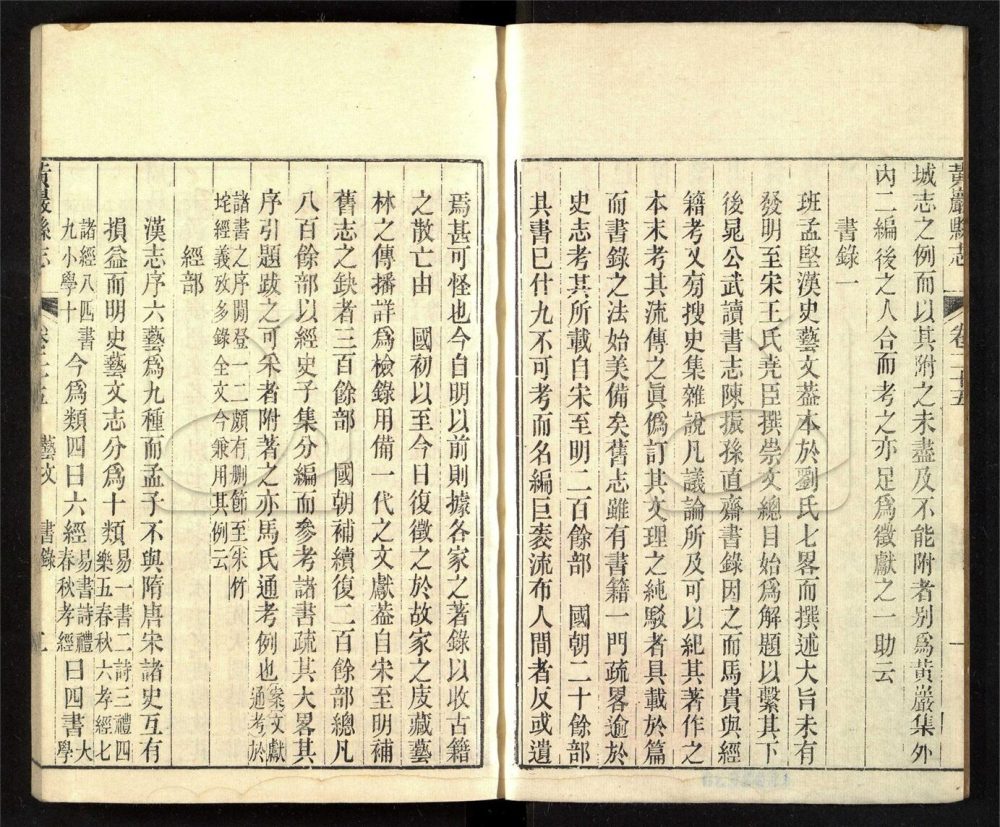 黃巖縣志
卷二十五
一
城志之例而以其附之未盡及不能附者別爲黃巖集外
內二編後之人合而考之亦足爲徵獻之一助云
書錄一
班孟堅漢史藝文葢本於劉氏七畧而撰述大旨未有
發明至宋王氏堯臣撰崇文總目始爲解題以繫其下
後晁公武讀書志陳振孫直齋書錄因之而馬貴與經
籍考又旁搜史集雜說凡議論所及可以紀其著作之
本末考其流傳之眞僞訂其文理之純駁者具載於篇
而書錄之法始美備矣舊志雖有書籍一門疏畧逾於
史志考其所載自宋至明二百餘部　國朝二十餘部
其書已什九不可考而名編巨袠流布人間者反或遺
焉甚可怪也今自明以前則據各家之著錄以收古籍
之散亡由　國初以至今日復徵之於故家之庋藏藝
林之傳播詳爲檢錄用備一代之文獻葢自宋至明補
舊志之缺者三百餘部　國朝補續復二百餘部總凡
八百餘部以經史子集分編而參考諸書疏其大畧其
序引題跋之可采者附著之亦馬氏通考例也案文獻通考於
諸書之序閒登一二頗有刪節至朱竹
垞經義攷多錄全文今兼用其例云
經部
漢志序六藝爲九種而孟子不與隋唐宋諸史互有
損益而明史藝文志分爲十類易一書二詩三禮四樂五春秋六孝經七
諸經八四書九小學十今爲類四曰六經易書詩禮春秋孝經曰四書大學
黃巖縣志
藝文
書錄